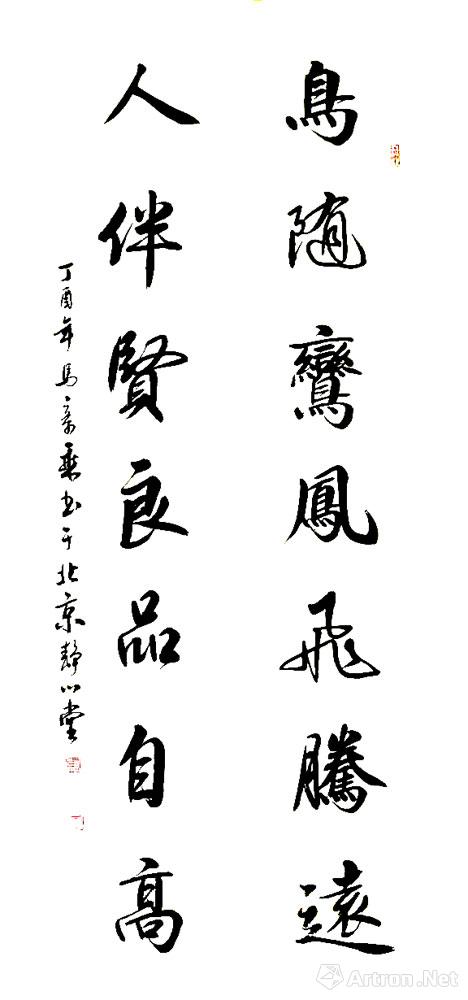 鳥隨鸞鳳飛騰遠
人伴賢良品自高
丁酉年馬彥乘书于北京静心堂
Artron.Net